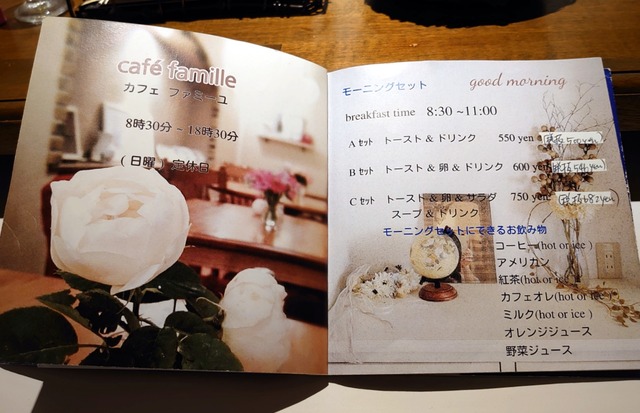 café famille
カフェ ファミーユ
8時30分 ~ 18時30分
( 日曜 ) 定休日
モーニングセット
good morning
breakfast time 8:30 ~11:00
A セット トースト & ドリンク 550 yen (税抜500yen)
B セット トースト & 卵 & ドリンク 600 yen (税抜546yen)
C セット トースト & 卵 & サラダ 750 yen (税抜682yen)
スープ & ドリンク
モーニングセットにできるお飲み物
コーヒー(hot or ice )
アメリカン
紅茶(hot or ice )
カフェオレ(hot or ice )
ミルク(hot or ice )
オレンジジュース
野菜ジュース